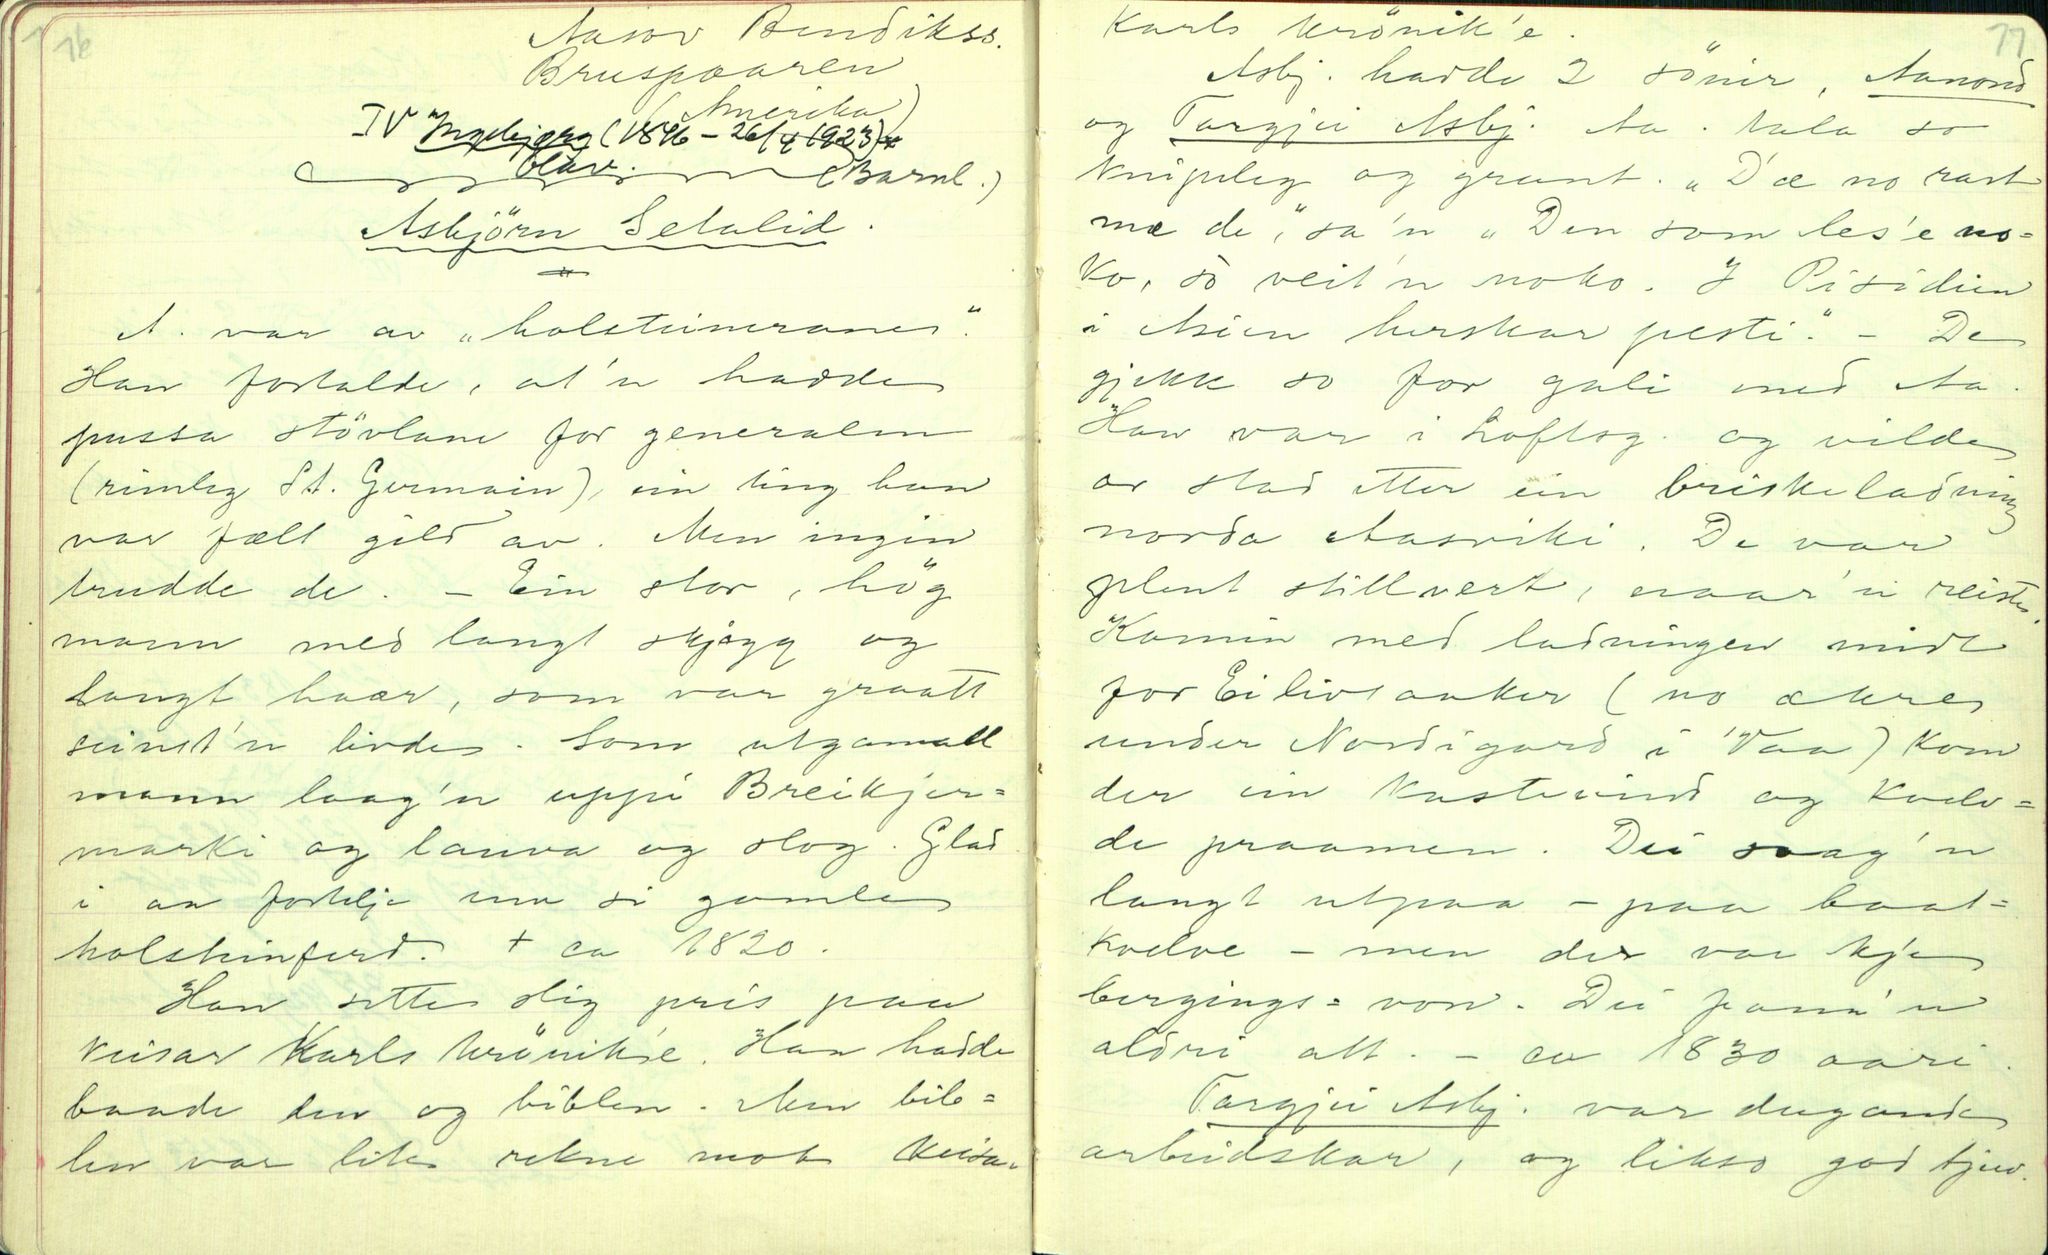 76
Aasov Bendikss.
Bruspaaren
(Amerika)
IV Ingebjørg (1846 - 26/4 1923) *
Olav. (Barnl.)
Asbjörn Setalid.
A. var av „holsteinerane".
Han fortalde, at'n hadde
pussa stövlane for generalen
(rimleg St. Germain), ein ting han
var fælt gild av. Men ingin
trudde de. - Ein stor, hög
mann med langt skjegg og
langt haar, som var graatt
seinst'n livde. Som utgamall
mann laag'n uppi Breikjer=
marki og lauva og slog. Glad
i aa fortelje um si gamle
holsteinferd. + ca 1820.
Han sette slig pris paa
Keisar Karls krönik'e. Han hadde
baade den og biblen. Men bib=
len var lite rekne mot Keisa-
77
Karls krönik'e.
Asbj. hadde 2 sönir, Aanond
og Targjei Asbj. Aa. tala so
knipeleg og grant. „D'æ no rart
mæ de," sa'n „Den som les'e no=
ko, so veit'n noko. I Pisidien
i Asien herskar pesti." - De
gjekk so for gali med Aa.
Han var i Loftsg. og vilde
av stad etter ein briskeladning
norda Aasviki. De var
plent stillvert, naar'n reiste.
Komin med ladningen midt
for Eilivsanker (no ækre
under Nordigard i Vaa) kom
der ein kastevind og kvelv=
de praamen. Dei saag'n
langt utpaa - paa baat=
kvelve - men der var kje
bergings=von. Dei fann'n
aldri att. - ca 1830 aari.
Targjei Asbj. var dugande
arbeidskar, og likso god tjuv.